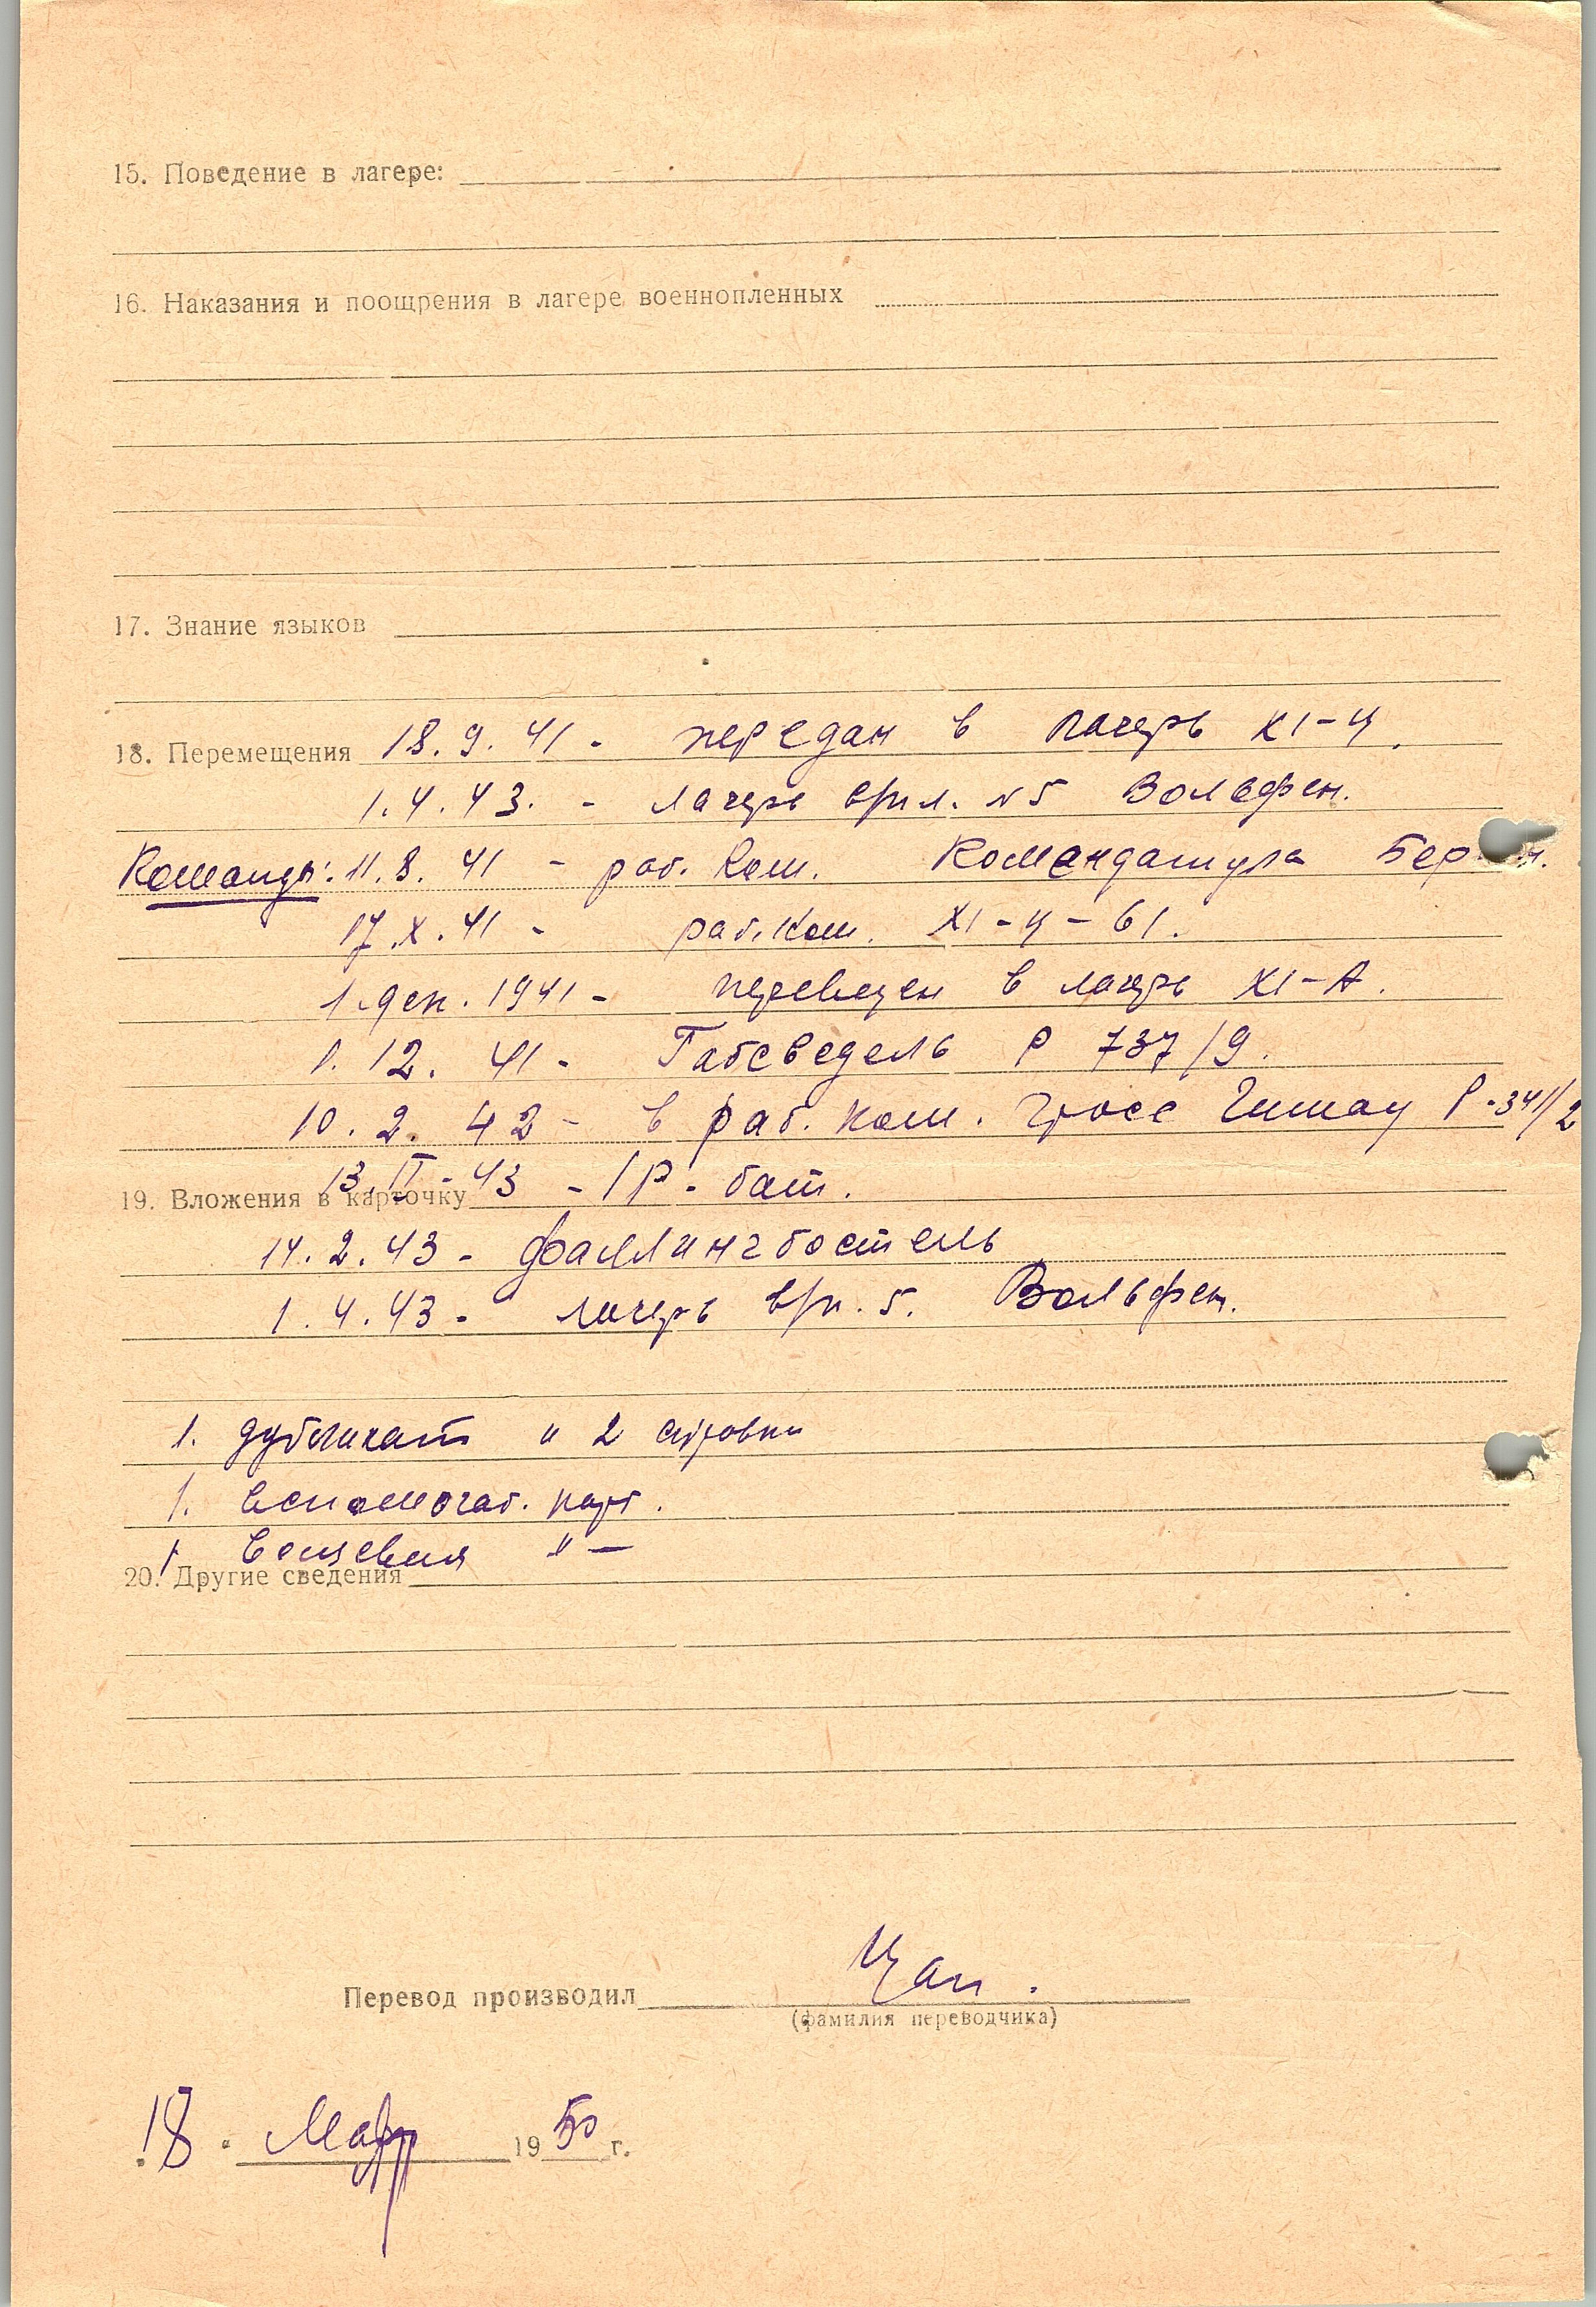 15. Поведение в лагере:
16. Наказания и поощрения в лагере военнопленных
17. Знание языков
18. Перемещения 18.9.41 - передан в лагерь XI-Ц.
1.4.43. - лагерь врем. №5 Вольфен.
Команды: 11.8.41 - раб. ком. Командатура Бер
17.X.41 - раб. ком. XI-Ц-61.
1.дек.1941 - переведен в лагерь XI-А.
1.12.41 - Габсведель Р 737/9.
10.2.42 - в раб. ком. Гросс Р-341/2
13.II-43 - IР-бат.
19. Вложения в карточку
14.2.43 - Фаллингбостель
1.4.43 - лагерь вр. 5. Вольфен.
1. дубликат и 2 справки
1. вспомогат. карт.
1. вещевая -"-
20. Другие сведения
Перевод производил Цан.
(фамилия переводчика)
18. Март 1950 г.